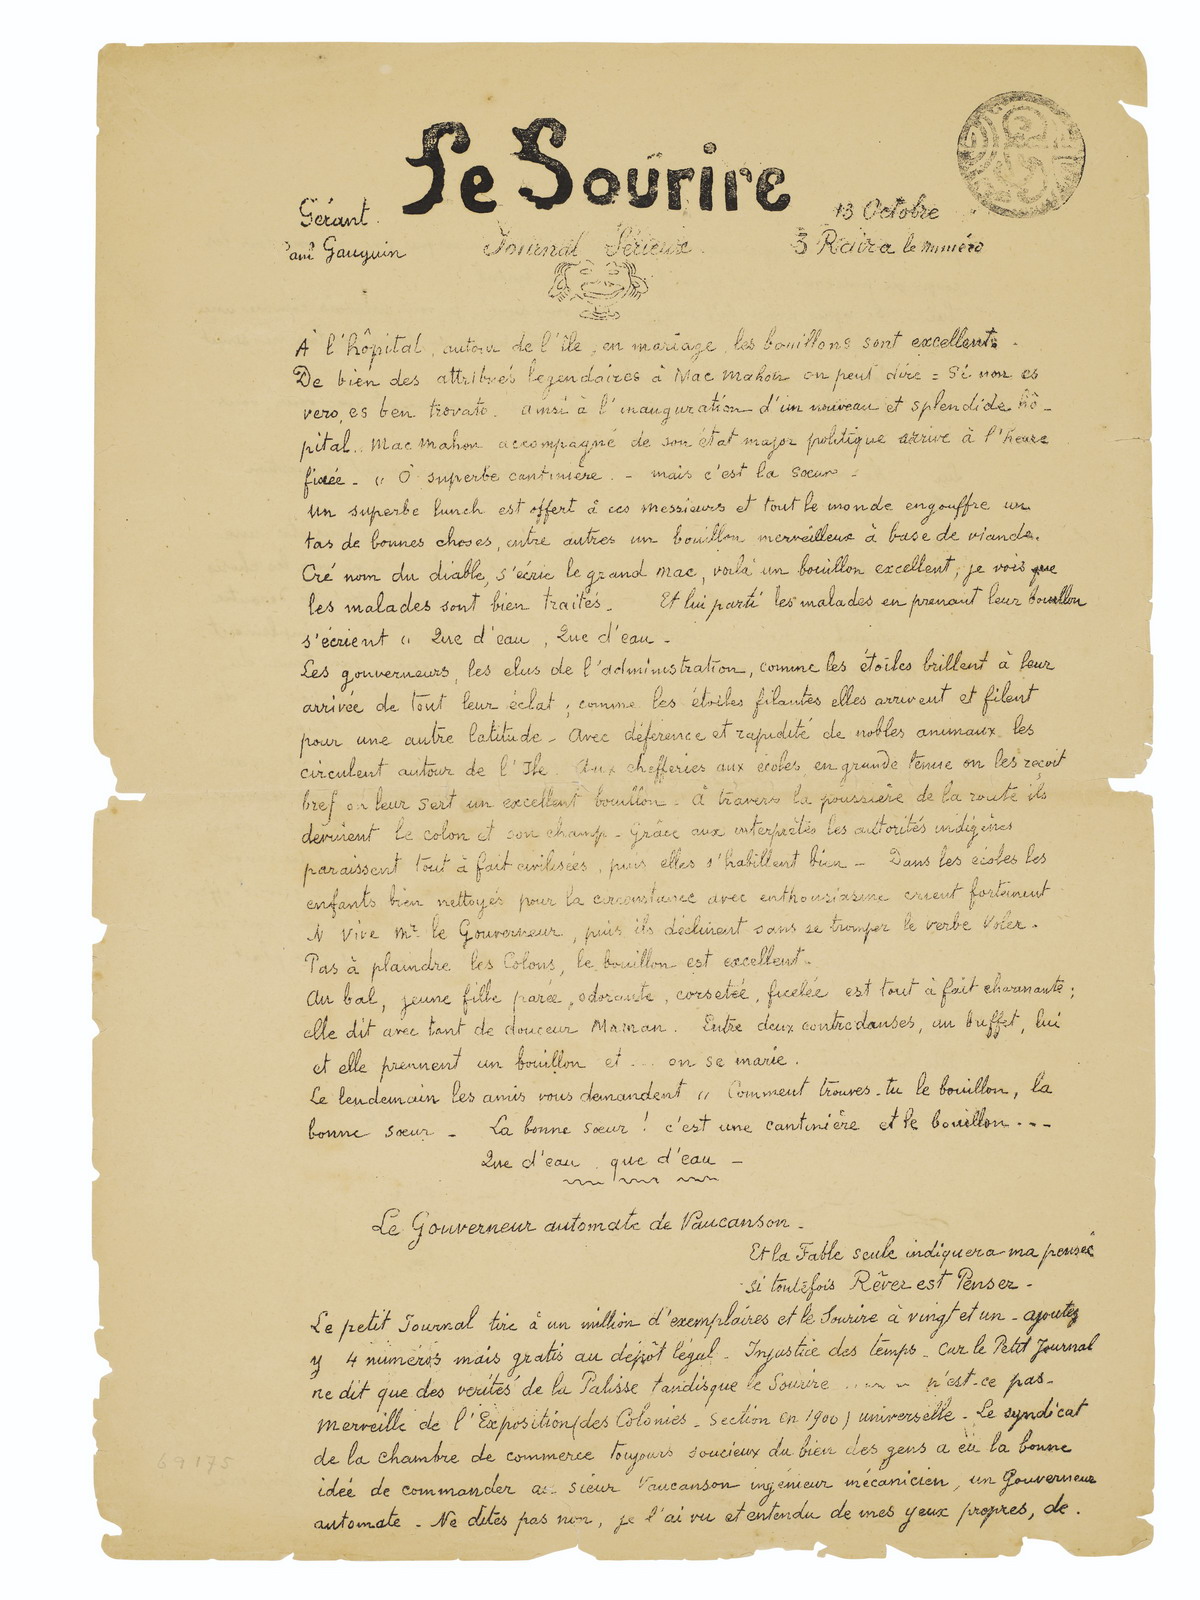 Le Sourire
Gérant
Paul Gauguin
Journal Sérieux
13 Octobre
3 Raira le numéro
A l'hôpital, autour de l'île, en mariage, les bouillons sont excellents.
De bien des attribués legendaires à Mac Mahon on peut dire = Si non es
vero, es ben trovato. ainsi à l'inauguration d'un nouveau et splendide hô-
pital.. Mac Mahon accompagné de son état major politique arrive à l'heure
fixée - " O superbe cantinière. - mais c'est la Sœur -
Un superbe lunch est offert à ces messieurs et tout le monde engouffre un
tas de bonnes choses, entre autres un bouillon merveilleux à base de viande.
Cré nom du diable, s'écrie le grand Mac, voilà un bouillon excellent, je vois que
les malades sont bien traités. Et lui parti les malades en prenant leur bouillon
s'écrient " Que d'eau, Que d'eau -
Les gouverneurs, les elus de l'administration, comme les étoiles brillent à leur
arrivée de tout leur éclat ; comme les étoiles filantes elles arrivent et filent
pour une autre latitude - Avec déférence et rapidité de nobles animaux les
circulent autour de l'Ile. Aux chefferies aux écoles en grande tenue on les reçoit
bref on leur sert un excellent bouillon - à travers la poussière de la route ils
devinent le colon et son champ - Grâce aux interprètes les autorités indigènes
paraissent tout à fait civilisées, puis elles s'habillent bien - Dans les écoles les
enfants bien nettoyés pour la circonstance avec enthousiasme crient fortement
Vive Mr le Gouverneur, puis ils déclinent sans se tromper le verbe Voler.
Pas à plaindre les Colons, le bouillon est excellent.
Au bal, jeune fille parée, odorante, corsetée, ficelée est tout à fait charmante ;
elle dit avec tant de douceur Maman. Entre deux contredanses, au buffet, lui
et elle prennent un bouillon et ... on se marie.
Le lendemain les amis vous demandent " Comment trouves-tu le bouillon, la
bonne sœur - La bonne sœur ! c'est une cantinière et le bouillon ---
Que d'eau que d'eau -
Le Gouverneur automate de Vaucanson -
Et la Fable seule indiquera ma pensée
si toutefois Rêver est Penser -
Le petit Journal tire à un million d'exemplaires et le Sourire à vingt et un - ajoutez
y 4 numéros mais gratis au dépôt légal - Injustice des temps - Car le Petit Journal
ne dit que des verités de la Palisse tandisque le Sourire ..... n'est-ce pas -
Merveille de l'Exposition (des Colonies - Section en 1900) universelle - Le syndicat
de la chambre de commerce toujours soucieux du bien des gens a eu la bonne
idée de commander au sieur Vaucanson ingénieur mécanicien, un Gouverneur
automate - Ne dites pas non, je l'ai vu et entendu de mes yeux propres, de.
69175